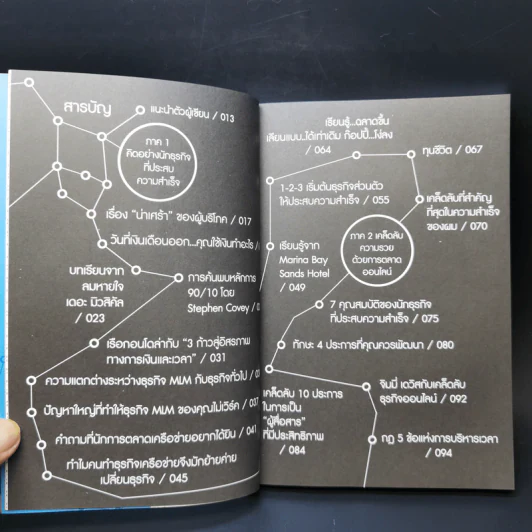 สารบัญ
แนะนำตัวผู้เขียน / 013
ภาค 1
คิดอย่างนักธุรกิจ
ที่ประสบ
ความสำเร็จ
เรื่อง "น่าเศร้า" ของผู้บริโภค / 017
วันที่เงินเดือนออก...คุณใช้เงินทำอะไร /
บทเรียนจาก
ลมหายใจ
เดอะ มิวสิคัล
/ 023
การค้นพบหลักการ
90/10 โดย
Stephen Covey /
เรือกอนโดล่ากับ "3 ก้าวสู่อิสรภาพ
ทางการเงินและเวลา" / 031
ความแตกต่างระหว่างธุรกิจ MLM กับธุรกิจทั่วไป /
ปัญหาใหญ่ที่ทำให้ธุรกิจ MLM ของคุณไม่เวิร์ค / 037
คำถามที่นักการตลาดเครือข่ายอยากได้ยิน / 041
ทำไมคนทำธุรกิจเครือข่ายจึงมักย้ายค่าย
เปลี่ยนธุรกิจ / 045
เรียนรู้...ฉลาดขึ้น
เลียนแบบ...ได้เท่าเดิม ก๊อปปี้...โง่ลง
/ 064
ทุนชีวิต / 067
1-2-3 เริ่มต้นธุรกิจส่วนตัว
ให้ประสบความสำเร็จ / 055
เคล็ดลับที่สำคัญ
ที่สุดในความสำเร็จ
ของผม / 070
เรียนรู้จาก
Marina Bay
Sands Hotel
/ 049
ภาค 2 เคล็ดลับ
ความรวย
ด้วยการตลาด
ออนไลน์
7 คุณสมบัติของนักธุรกิจ
ที่ประสบความสำเร็จ / 075
ทักษะ 4 ประการที่คุณควรพัฒนา / 080
เคล็ดลับ 10 ประการ
ในการเป็น
"ผู้สื่อสาร"
ที่มีประสิทธิภาพ
/ 084
จิมมี่ เดวิสกับเคล็ดลับ
ธุรกิจออนไลน์ / 092
กฎ 5 ข้อแห่งการบริหารเวลา
/ 094